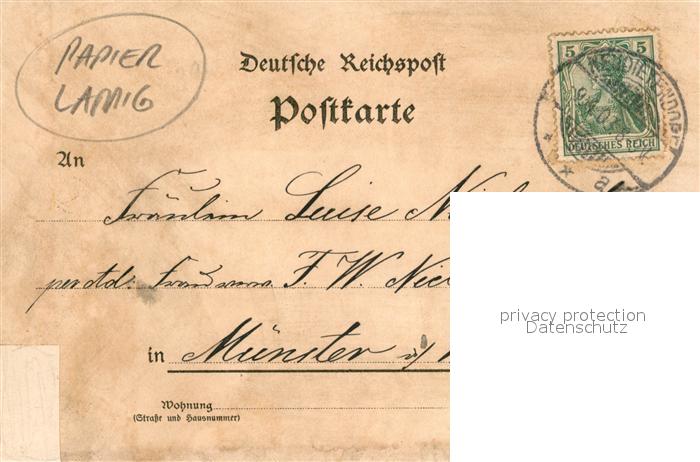 PAPIER
LAMIG
Deutsche Reichspost
Postkarte
5 5
DEUTSCHES REICH
An
Fräulein Luise
F. W.
in Münster
Wohnung
(Straße und Hausnummer)
privacy protection
Datenschutz